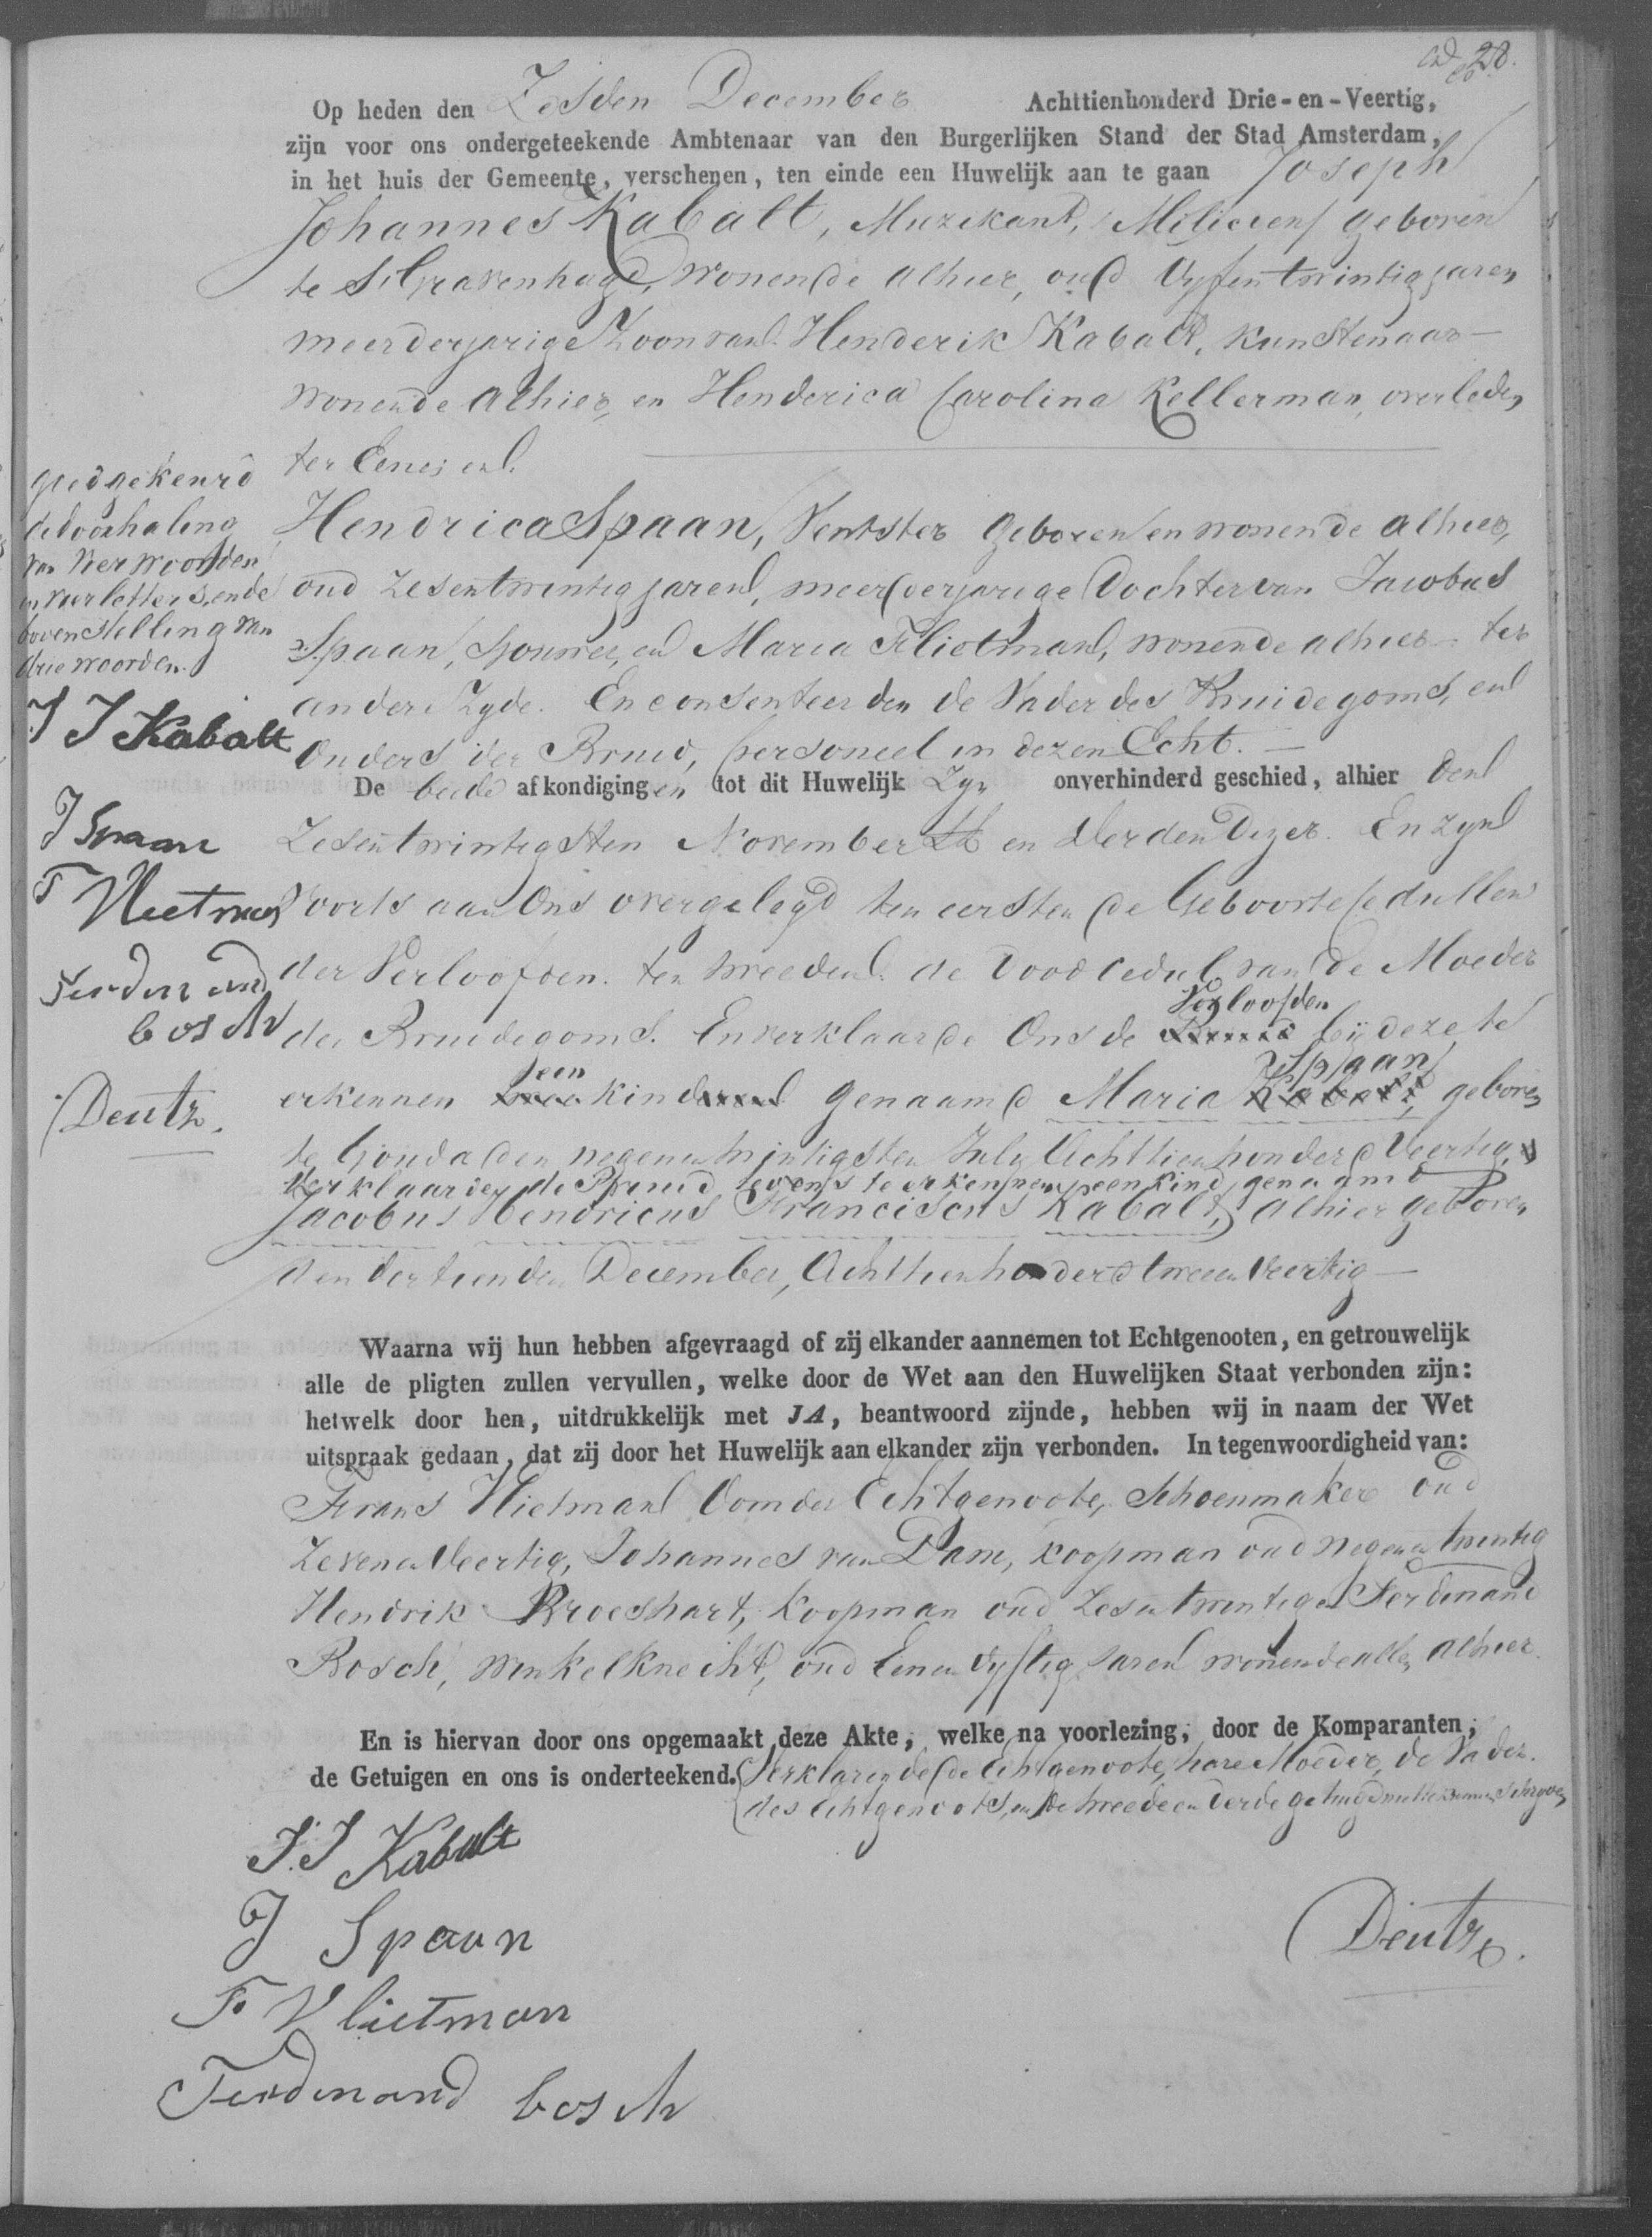 28.
Op heden den Zesden December Achttienhonderd Drie-en-Veertig,
zijn voor ons ondergeteekende Ambtenaar van den Burgerlijken Stand der Stad Amsterdam,
in het huis der Gemeente, verschenen, ten einde een Huwelijk aan te gaan Joseph
Johannes Kabalt, Muzikant, Milicien geboren
te S'Gravenhage, wonende alhier, oud Vyfentwintig jaren
meerderjarige Zoon van Henderik Kabalt, Kunstenaar
wonende alhier, en Henderica Carolina Kellerman, overleden
ter Eener en
Hendrica Spaan, Ventster geboren en wonende alhier,
oud Zesentwintig jaren, meerderjarige Dochter van Jacobus
Spaan, Sjouwer, en Maria Vlietman, wonende alhier ter
andere Zyde. En consenteerden de Vader des Bruidegoms, en
Ouders der Bruid, personeel in dezen Echt.
De beide afkondigingen tot dit Huwelijk Zyn onverhinderd geschied, alhier den
Zesentwintigsten November en derden Dezer. En zyn
voorts aan Ons overgelegd ten eersten de Geboortecedullen
der Verloofden. ten tweeden de Doodcedul van de Moeder
des Bruidegoms. En verklaarde Ons de Verloofden bij deze te
erkennen een kind genaamd Maria Spaan geboren
te Gouda den negenentwintigsten July Achttienhonderd Veertig,
Verklaarden de Bruid tevens te erkennen een kind genaamd
Jacobus Hendricus Franciscus Kabalt, alhier geboren
den dertienden December, Achttienhonderd tweeenveertig
Waarna wij hun hebben afgevraagd of zij elkander aannemen tot Echtgenooten, en getrouwelijk
alle de pligten zullen vervullen, welke door de Wet aan den Huwelijken Staat verbonden zijn:
hetwelk door hen, uitdrukkelijk met JA, beantwoord zijnde, hebben wij in naam der Wet
uitspraak gedaan, dat zij door het Huwelijk aan elkander zijn verbonden. In tegenwoordigheid van:
Frans Vlietman Oom der Echtgenoote, Schoenmaker oud
Zevenenveertig, Johannes van Dam, koopman oud negenentwintig
Hendrik Broeshart, Koopman oud Zesentwintig en Ferdinand
Bosch, winkelknecht, oud Eenenvyftig Jaren wonende allen alhier.
En is hiervan door ons opgemaakt deze Akte, welke na voorlezing, door de Komparanten,
de Getuigen en ons is onderteekend. Verklarende de Echtgenoote, hare Moeder, de Vader
des Echtgenoots, en de tweede en derde getuige niet te kunnen Schryven
J.J Kabalt
J Spaan
F Vlietman
Ferdinand bosch
Deutz.
goedgekeurd
de doorhaling
van vier woorden
en vier letters, en de
bovenstelling van
drie woorden.
J J Kabalt
J Spaan
F Vlietman
Ferdinand
bosch
Deutz.